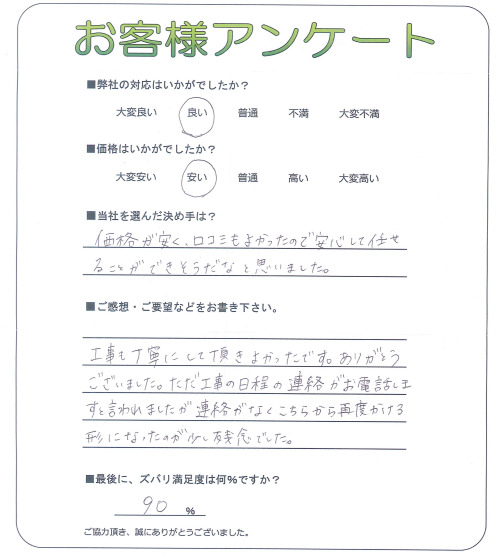 お客様アンケート
■弊社の対応はいかがでしたか？
大変良い 良い 普通 不満 大変不満
■価格はいかがでしたか？
大変安い 安い 普通 高い 大変高い
■当社を選んだ決め手は？
価格が安く、口コミもよかったので安心して任せ
ることができそうだなと思いました。
■ご感想・ご要望などをお書き下さい。
工事も丁寧にして頂きよかったです。ありがとう
ございました。ただ工事の日程の連絡がお電話しま
すと言われましたが連絡がなくこちらから再度かける
形になったのが少し残念でした。
■最後に、ズバリ満足度は何%ですか？
90 %
ご協力頂き、誠にありがとうございました。